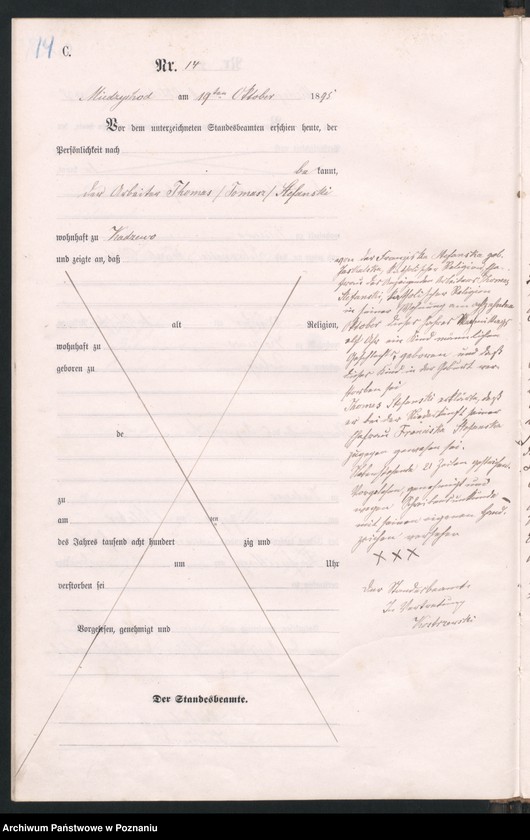 14 C.
Nr. 14
Miedzychod am 19ten Oktober 1895
Vor dem unterzeichneten Standesbeamten erschien heute, der
Persönlichkeit nach
be kannt,
der Arbeiter Thomas /Tomasz/ Stefanski
wohnhaft zu
und zeigte an, daß
von der Franziska Stefanska geb.
katholischer Religion Ehe-
frau des Anzeigenden Arbeiters Thomas
Stefanski, katholischer Religion
in seiner Wohnung am achtzehnten
Oktober dieses Jahres Vormittags
elf Uhr ein Kind männlichen
Geschlechts geboren und daß
dieses Kind in der Geburt ver-
storben sei
Thomas Stefanski erklärte, daß
er bei der Niederkunft seiner
Ehefrau Franciska Stefanska
zugegen gewesen sei.
Nebenstehende 21 Zeilen gestrichen.
Vorgelesen, genehmigt und
wegen Schreibensunkunde
mit seinem eigenen Hand-
zeichen versehen
XXX
Der Standesbeamte
In Vertretung
alt Religion,
wohnhaft zu
geboren zu
de
zu
am ten
des Jahres tausend acht hundert zig und
um Uhr
verstorben sei
Vorgelesen, genehmigt und
Der Standesbeamte.
Archiwum Państwowe w Poznaniu